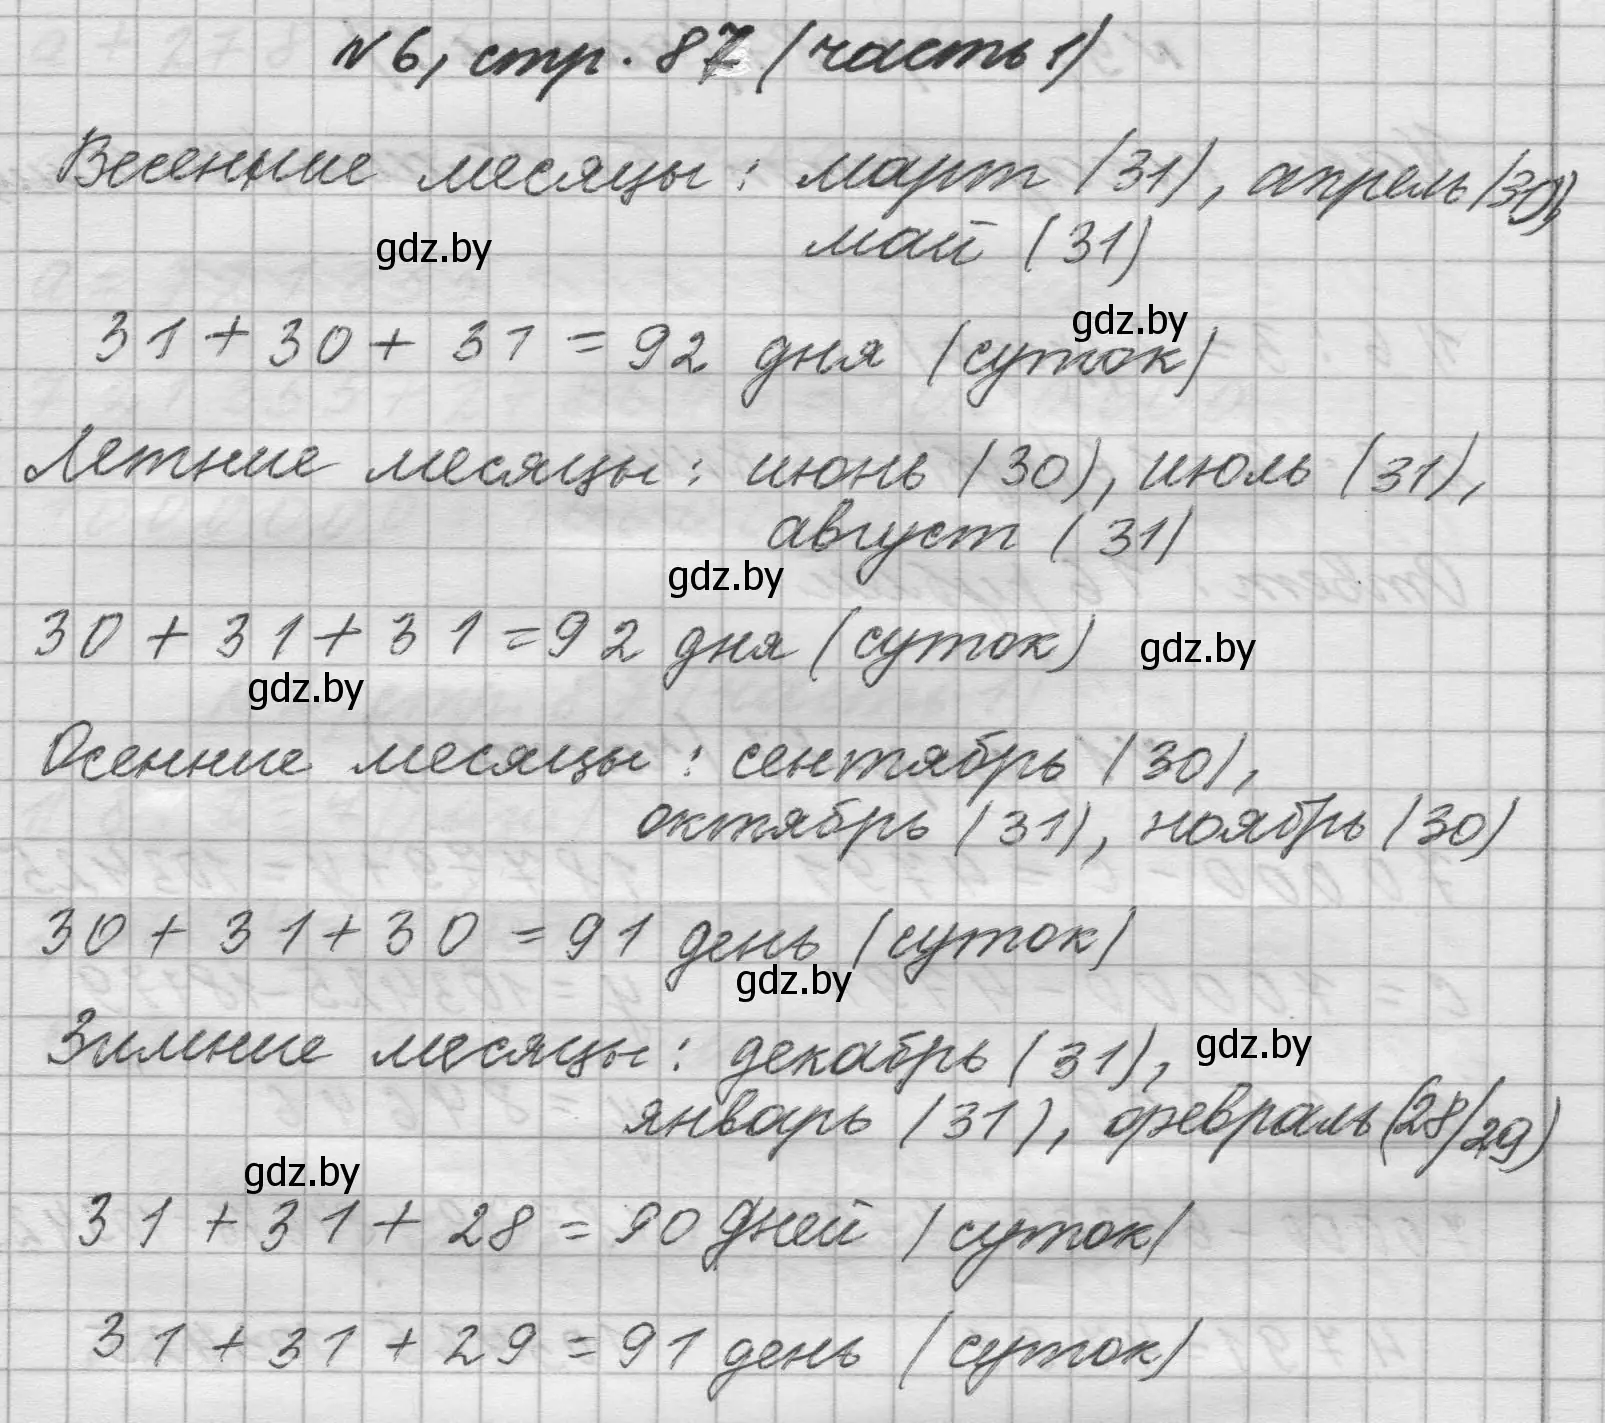 №6, стр. 87 (часть 1)
Весенние месяцы: март (31), апрель (30),
gdz.by
май (31)
gdz.by
31 + 30 + 31 = 92 дня (суток)
Летние месяцы: июнь (30), июль (31),
август (31)
gdz.by
30 + 31 + 31 = 92 дня (суток)
gdz.by
gdz.by
Осенние месяцы: сентябрь (30),
октябрь (31), ноябрь (30)
30 + 31 + 30 = 91 день (суток)
gdz.by
Зимние месяцы: декабрь (31),
gdz.by
январь (31), февраль (28/29)
gdz.by
31 + 31 + 28 = 90 дней (суток)
31 + 31 + 29 = 91 день (суток)